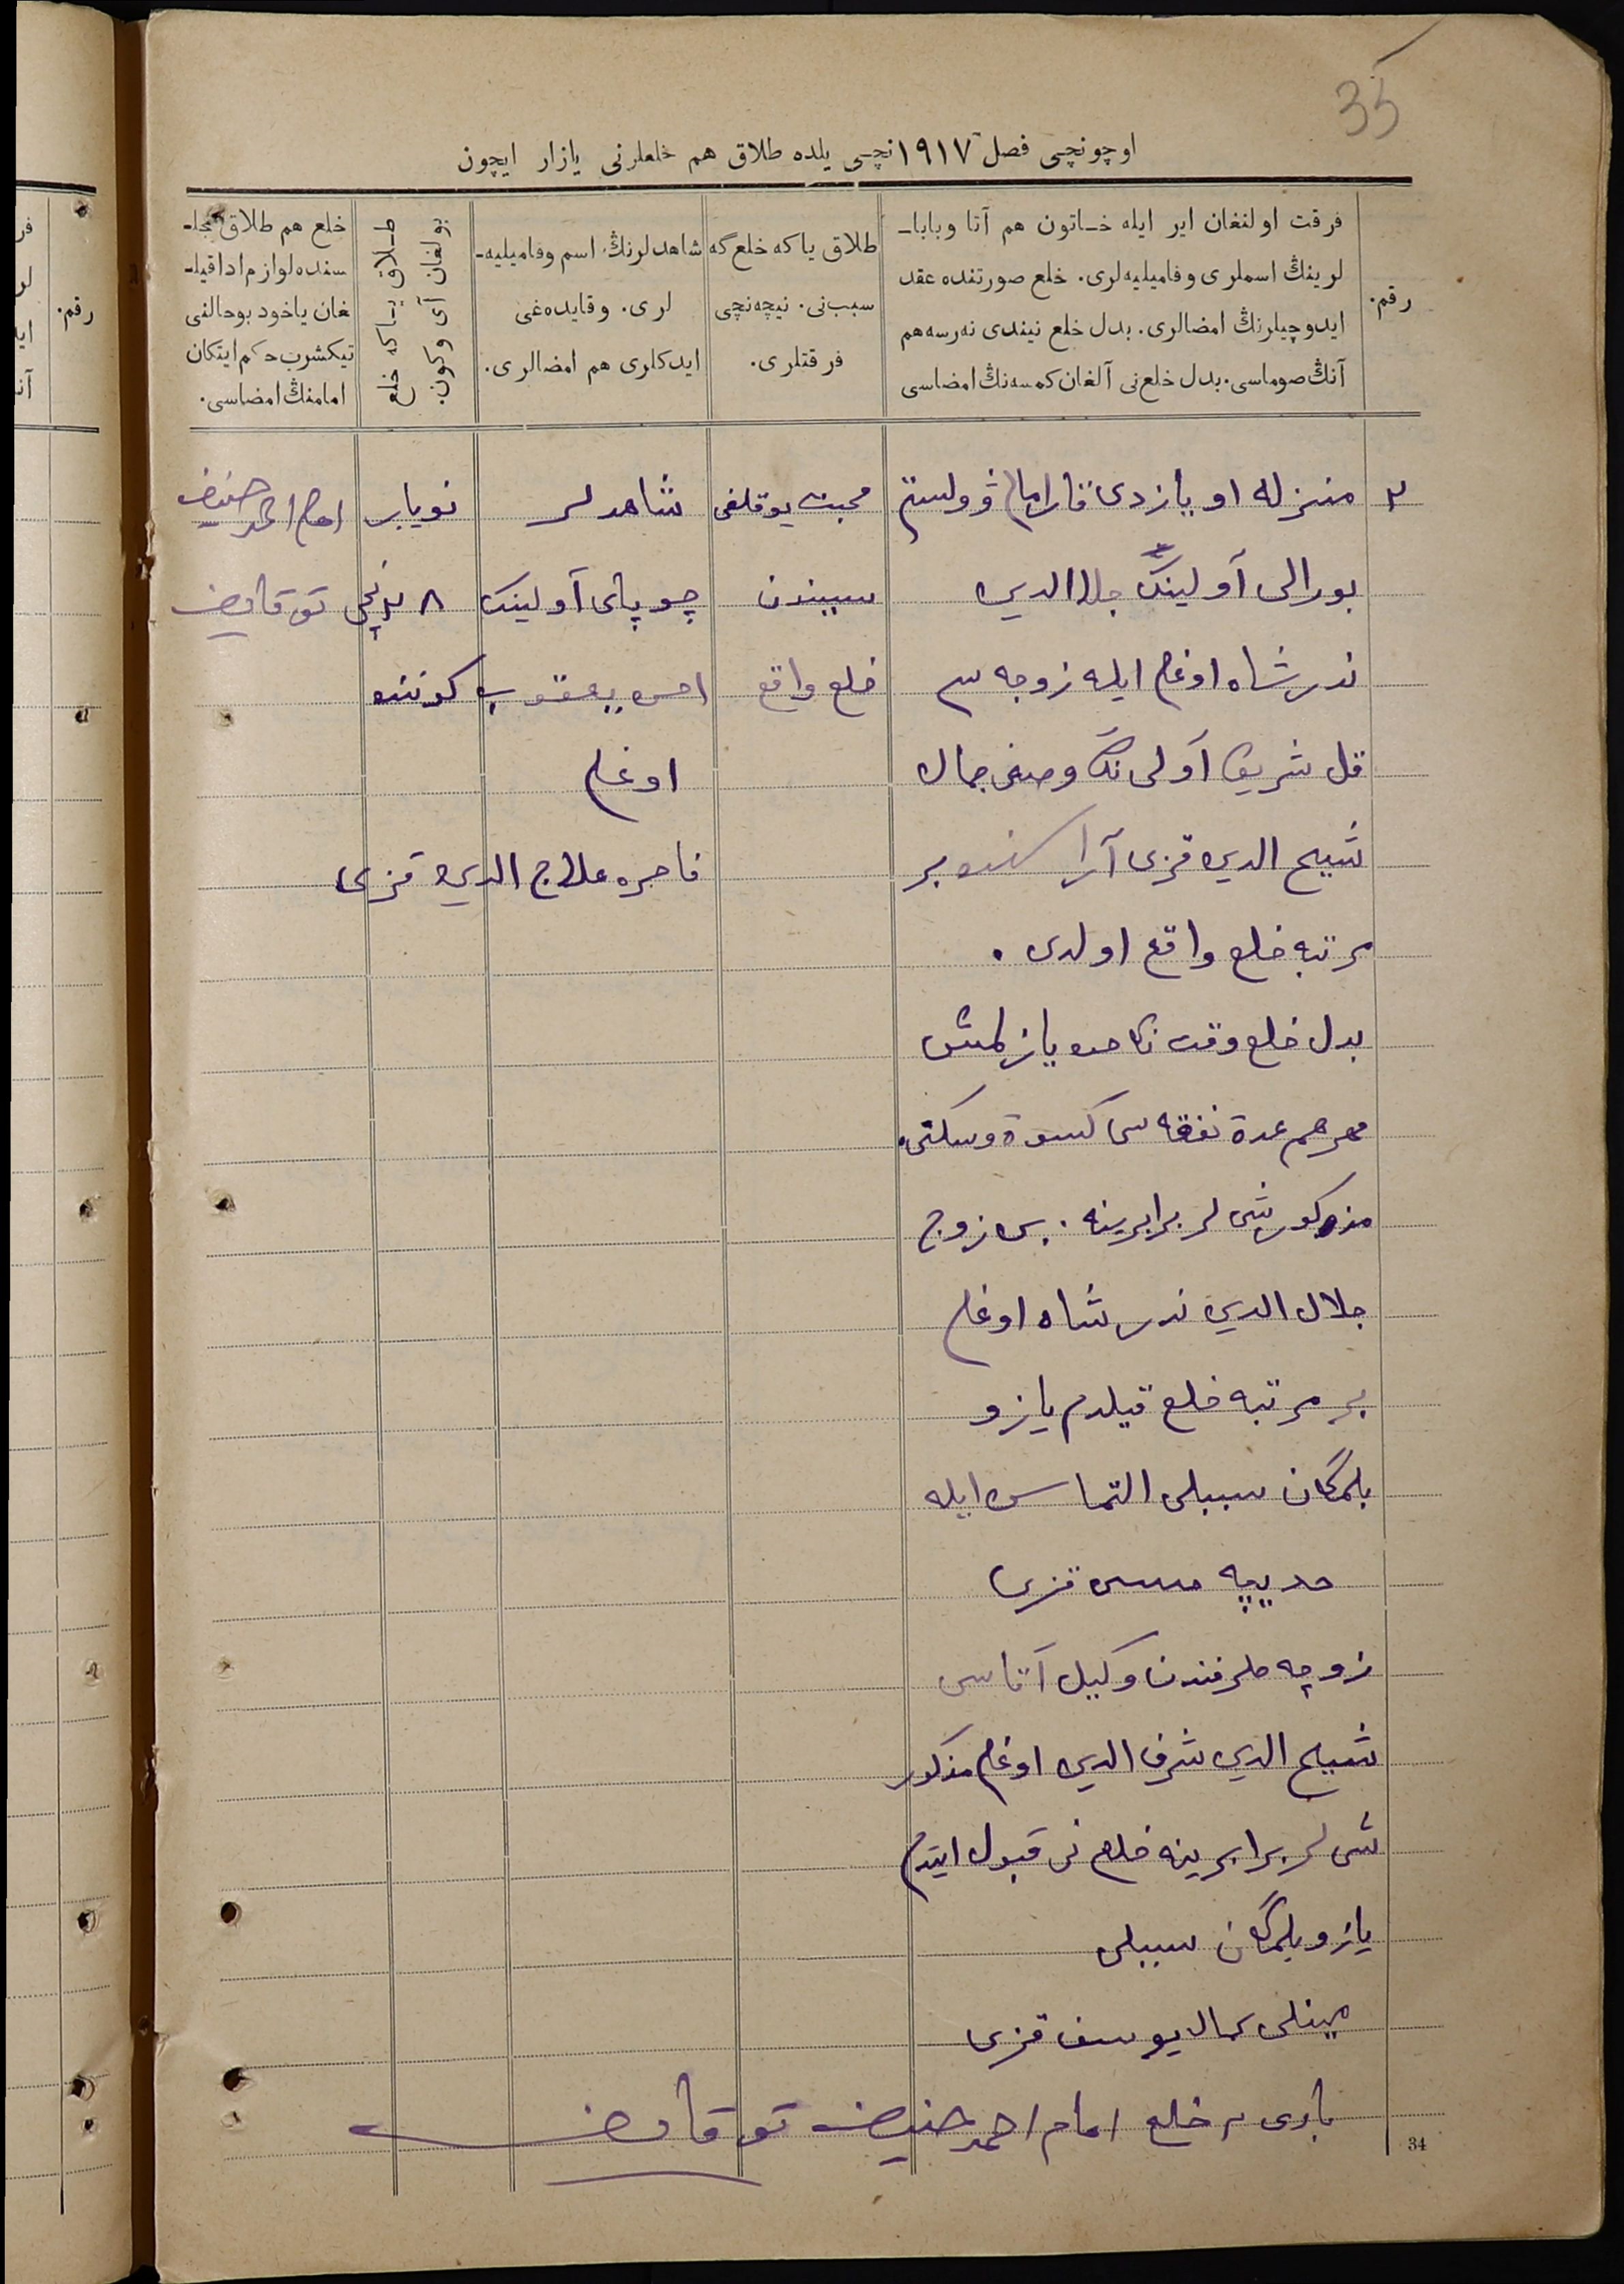 35
اوچونچی فصل ١٩١٧نچی یلده طلاق هم خلعلرنی یازار ایچون
رقم.
فرقت اولنغان ایر ایله خاتون هم آتا وبابا-
لرینڭ اسملری وفامیلیه‌لری. خلع صورتنده عقد
ایدوچیلرنڭ امضالری. بدل خلع نیندی نه‌رسه هم
آنڭ صوماسی. بدل خلع‌نی آلغان کمسه‌نڭ امضاسی
طلاق یاکه خلع‌گه
سبب‌نی. نیچه‌نچی
فرقتلری.
شاهدلرنڭ اسم وفامیلیه-
لری. وقایده‌غی
ایدکلری هم امضالری.
طلاق یاکه خلع
بولغان آی وکون.
خلع هم طلاق مجل-
سنده لوازم ادا قیل-
غان یاخود بوحالنی
تیکشرب حکم ایتکان
امامنڭ امضاسی.
٢
منزله اویازدی قاراماɫ ڤولستی
بورالی آولینڭ جلال الدین
ندرشاه اوغلی ایله زوجه سی
قل شریف آولی نڭ وصفی جمال
شیخ الدین قزی آراسنده بر
مرتبه خلع واقع اولدی .
بدل خلع وقت نکاحده یازلمش
مهر هم عدة نفقه سی کسوة وسکنی
مذکور شی لر برابرینه . بن زوج
جلال الدین ندرشاه اوغلی
بر مرتبه خلع قیلدم یازو
بلمگان سببلی التماس ایله
قزی
زوجه طرفندن وکیل آتاسی
شیخ الدین شرف الدین اوغلی مذکور
شی لر برابرینه خلع نی قبول ایتدم
یازو بلمگان سببلی
یوسف قزی
محبت یوقلغی
سببندن
خلع واقع
شاهدلر
چوپای آولینڭ
یعقوب
اوغلی
علاج الدین قزی
نویابر
٨ نچی
کوننده
امام احمد حنیف
توقایف
باری ٢ خلع امام احمد حنیف توقایف
34